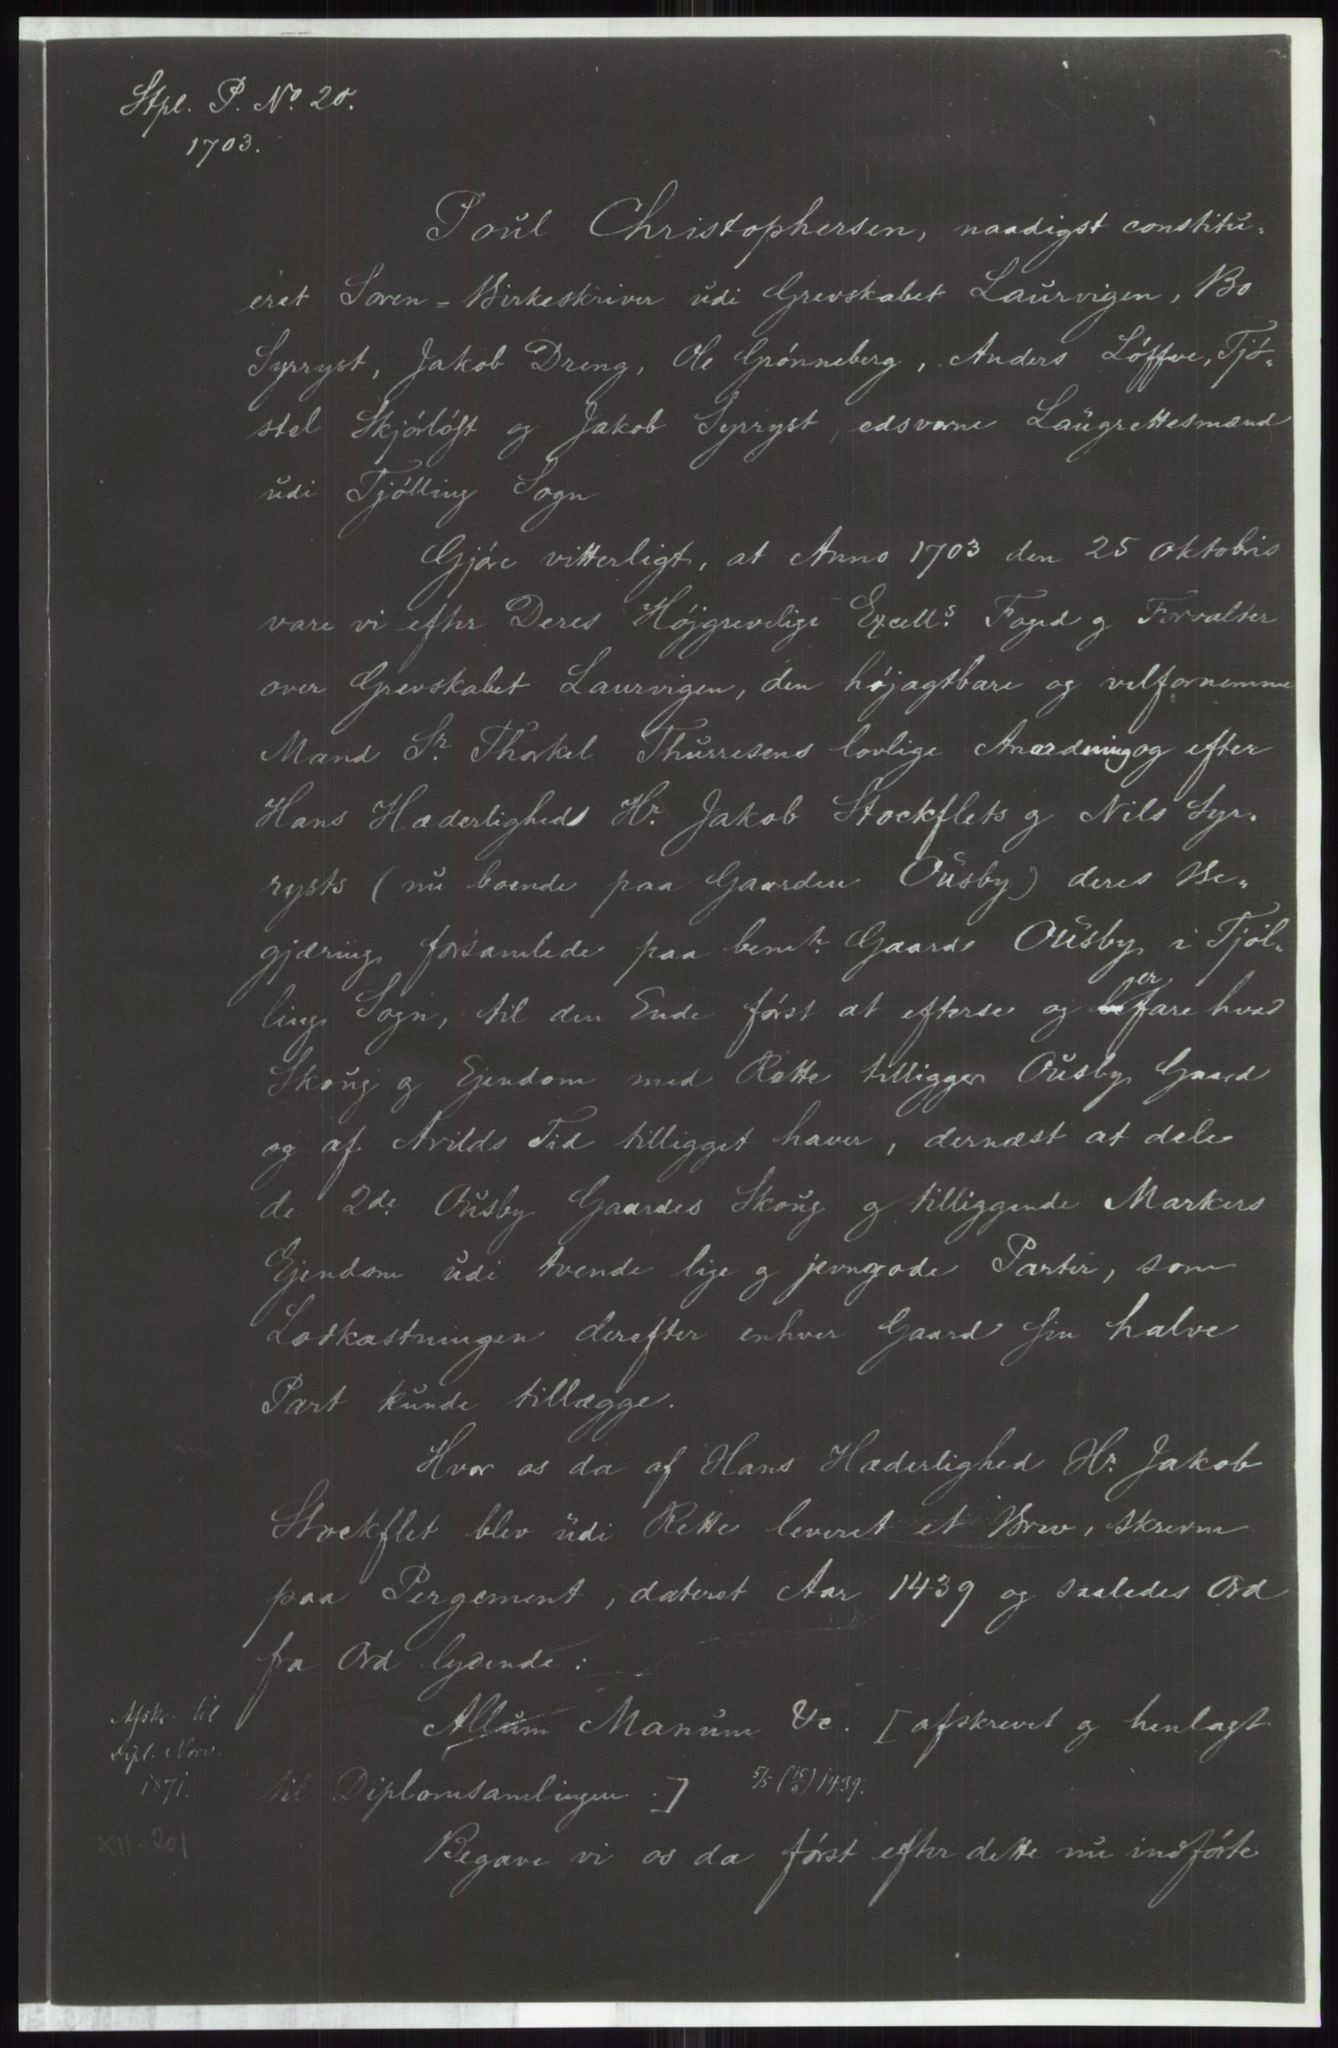 Stpl. P. No 20.
1703.
Poul Christophersen, naadigst constitu-
eret Soren-Birkeskriver udi Grevskabet Laurvigen, Bo
Syrryst, Jakob Dreng, Ole Grønneberg, Anders Løffve, Tjø-
stel Skjørløst og Jakob Syrryst, edsvorne Laugrettesmænd
udi Tjølling Sogn
Gjøre vitterligt, at Anno 1703 den 25 oktobris
vare vi efter Deres Højgrevelige Excells. Foged og Forvalter
over Grevskabet Laurvigen, den højagtbare og velfornemme
Mand Sr. Thorkel Thurresens lovlige Anordning og efter
Hans Hæderligheds Hr. Jakob Stockflets og Nils Syr-
rysts (nu boende paa Gaarden Ousby) deres Be-
gjæring forsamlede paa bemte. Gaard Ousby i Tjøl-
ling Sogn, til den Ende først at efterse og erfare hvad
Skoug og Ejendom med Rette tilligger Ousby Gaard
og af Arilds Tid tilligget haver, dernæst at dele
de 2de Ousby Gaardes Skoug og tilliggende Markers
Ejendom udi tvende lige og jevngode Parter, som
Lodkastningen derefter enhver Gaard sin halve
Part kunde tillægge.
Hvor os da af Hans Hæderlighed Hr. Jakob
Stockflet blev udi Rette leveret et Brev, skreven
paa Pergement, dateret Aar 1439 og saaledes Ord
fra Ord lydende:
Allum Manum &c. [afskrevet og henlagt
til Diplomsamlingen.] 5/5 (15/9) 1439.
Afskr. til
Dipl. Norv.
1871.
XII. 201
Begave vi os da først efter dette nu indførte